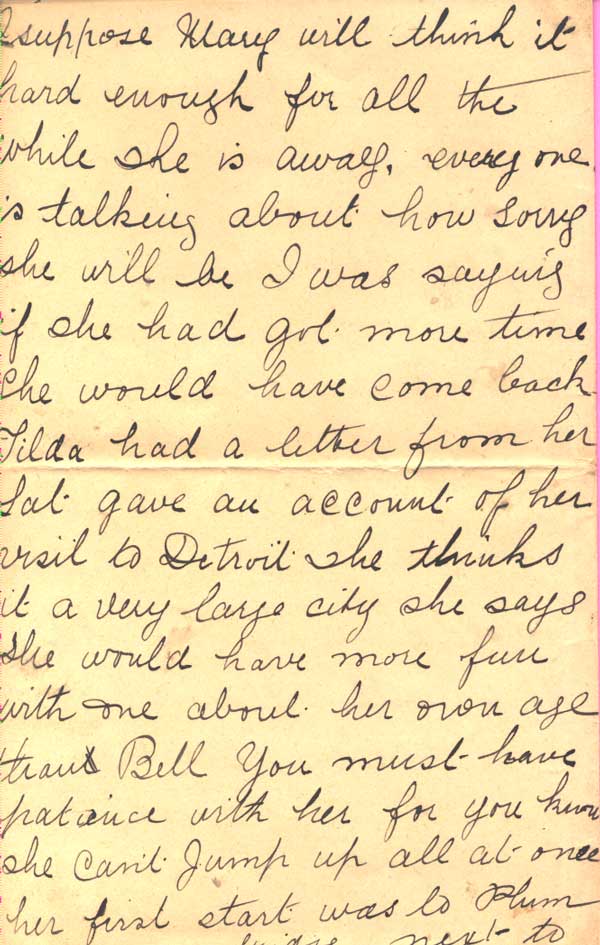 I suppose Mary will think it
hard enough for all the
while she is away, every one
is talking about how sorry
she will be I was saying
if she had got more time
she would have come back
Tilda had a letter from her
Sat gave an account of her
visit to Detroit she thinks
it a very large city she says
she would have more fun
with one about her own age
than Bell You must have
patience with her for you know
she can't Jump up all at once
her first start was to Plum
next to